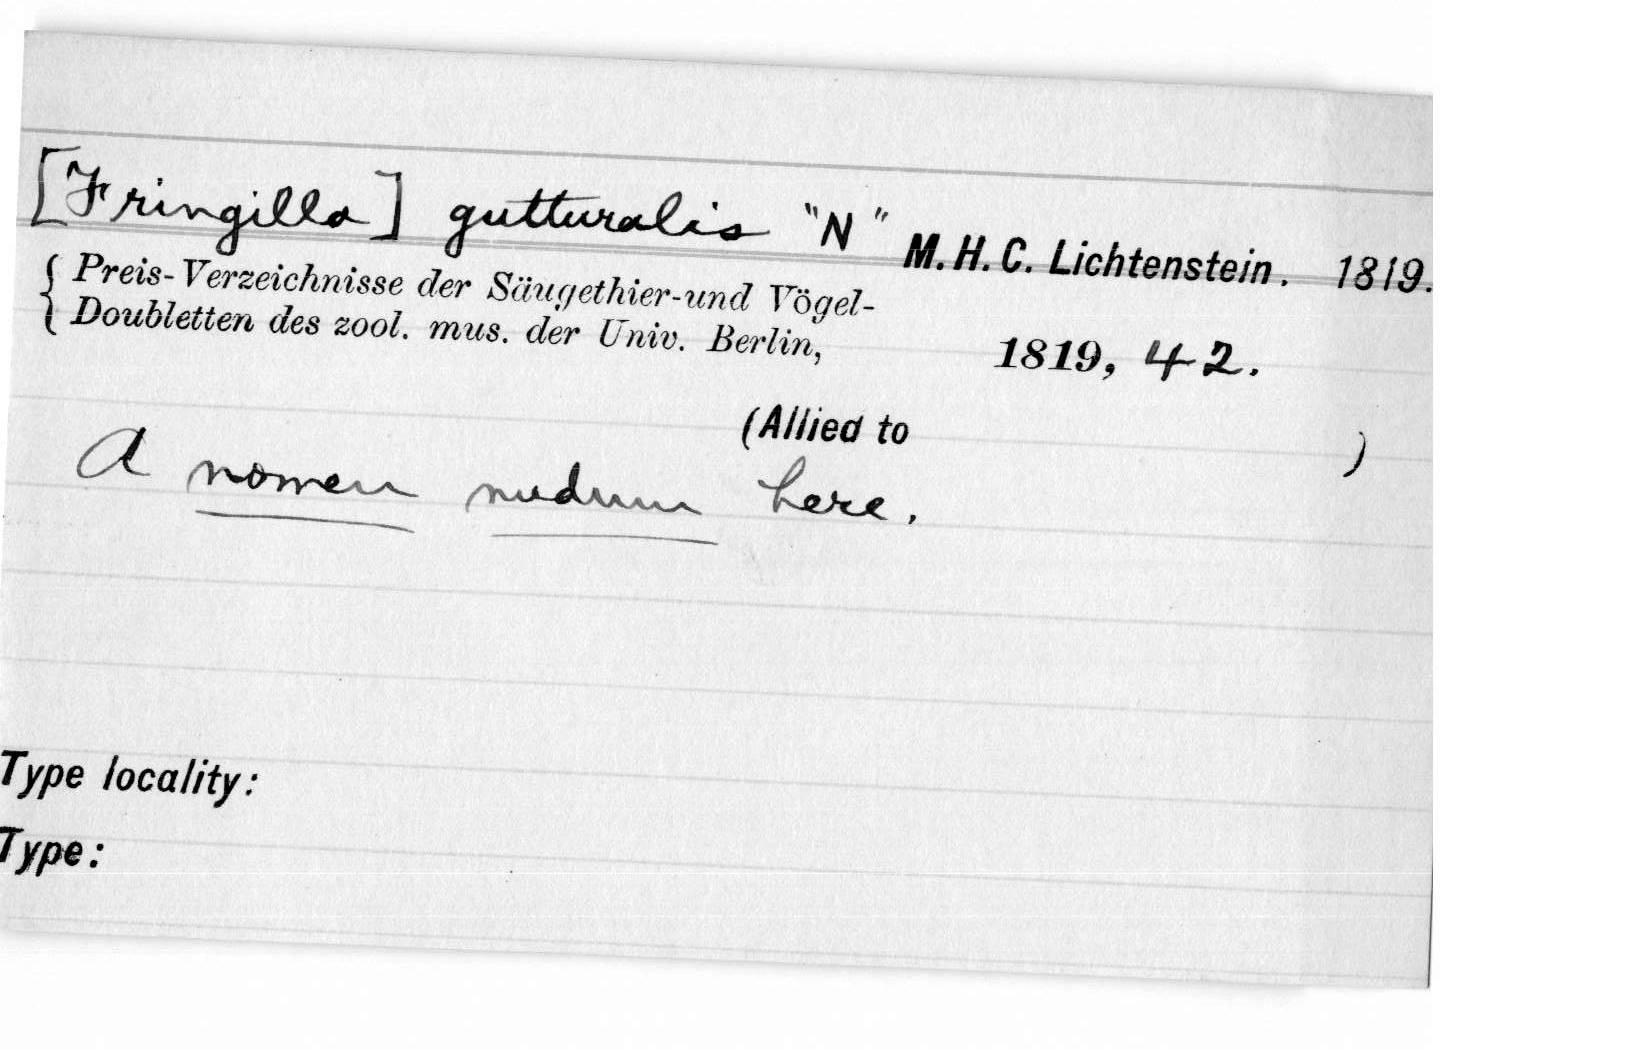 [Fringilla] gutturalis "N" M. H. C. Lichtenstein. 1819.
Preis-Verzeichnisse der Säugethier-und Vögel-
Doubletten des zool. mus. der Univ. Berlin, 1819, 42.
(Allied to )
A nomen nudum here.
Type locality:
Type: